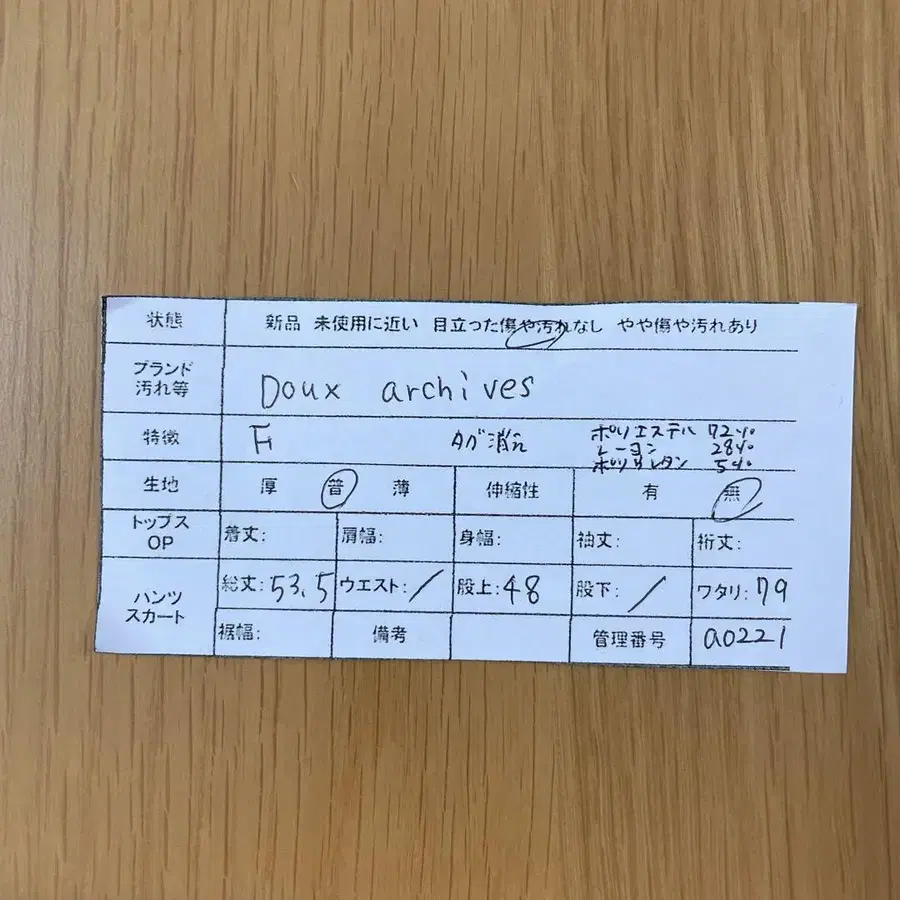 状態 新品 未使用に近い 目立った傷や汚れなし やや傷や汚れあり
ブランド
汚れ等 Doux archives
特徴 F タグ消え ポリエステル 72%
レーヨン 28%
ポリウレタン 5%
生地 厚 普 薄 伸縮性 有 無
トップス
OP 着丈: 肩幅: 身幅: 袖丈: 裄丈:
パンツ
スカート 総丈:53.5 ウエスト:/ 股上:48 股下:/ ワタリ:79
裾幅: 備考 管理番号 a0221